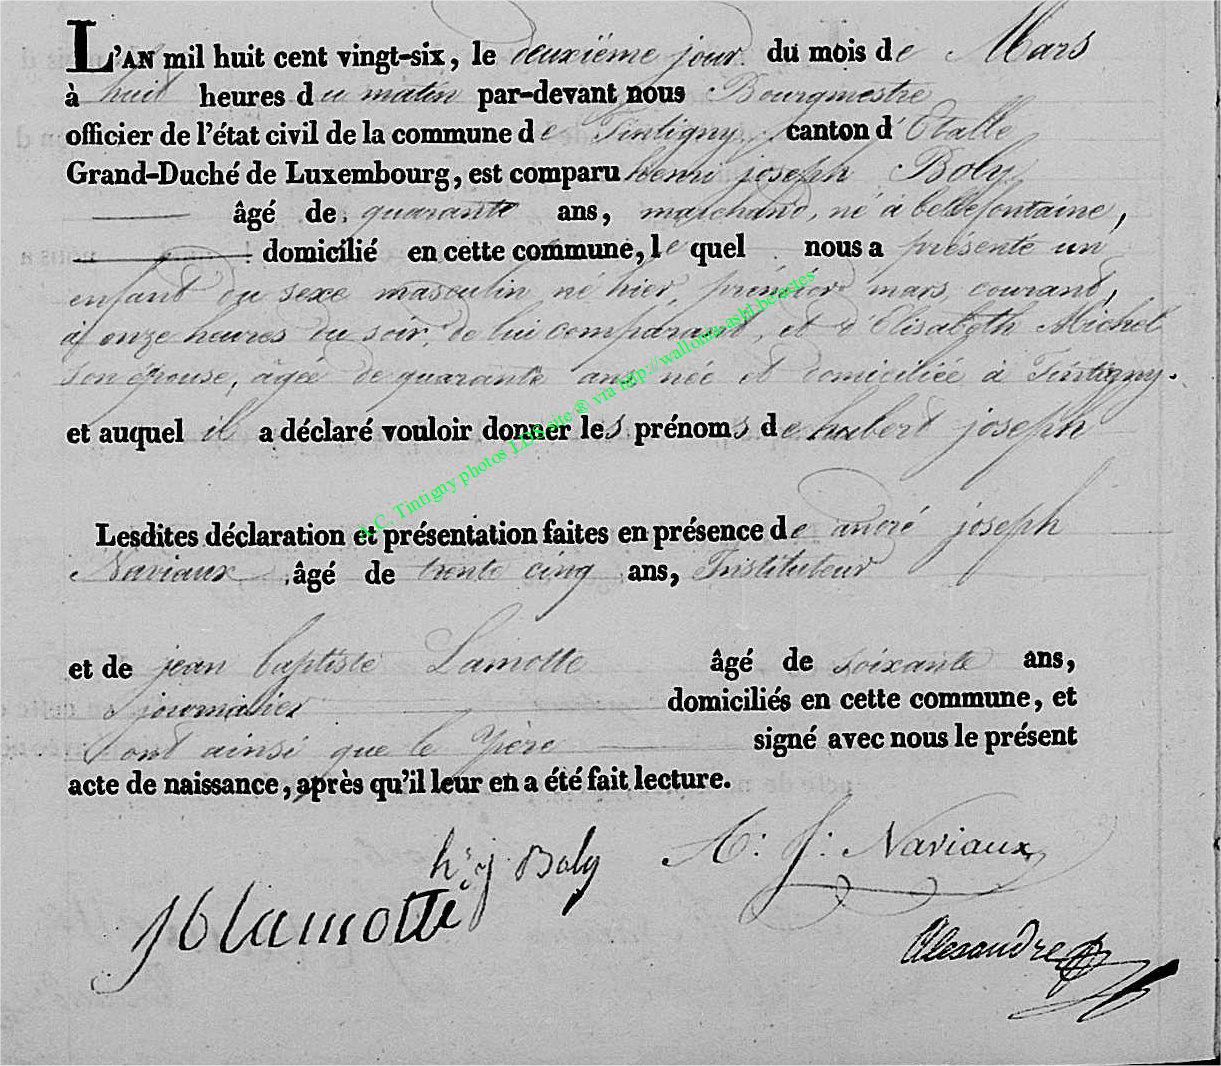 L'AN mil huit cent vingt-six, le deuxième jour du mois de Mars
à huit heures du matin par-devant nous Bourgmestre
officier de l'état civil de la commune de Tintigny, canton d'Etalle
Grand-Duché de Luxembourg, est comparu henri joseph Boly
âgé de quarante ans, marchand, né à bellefontaine,
domicilié en cette commune, lequel nous a présenté un
enfant du sexe masculin né hier, prémier mars courant,
à onze heures du soir, de lui comparant, et d'Elisabeth Michel
son épouse, agée de quarante ans née et domiciliée à Tintigny.
et auquel il a déclaré vouloir donner les prénoms de hubert joseph
A.C. Tintigny photos LDS site @ via http://wallonia-asbl.be/actes
Lesdites déclaration et présentation faites en présence de andré joseph
Naviaux âgé de trente cinq ans, Instituteur
et de jean baptiste Lamotte âgé de soixante ans,
journalier domiciliés en cette commune, et
ont ainsi que le Père signé avec nous le présent
acte de naissance, après qu'il leur en a été fait lecture.
hri j. Boly A: J: Naviaux
JB lamotte
Alexandre